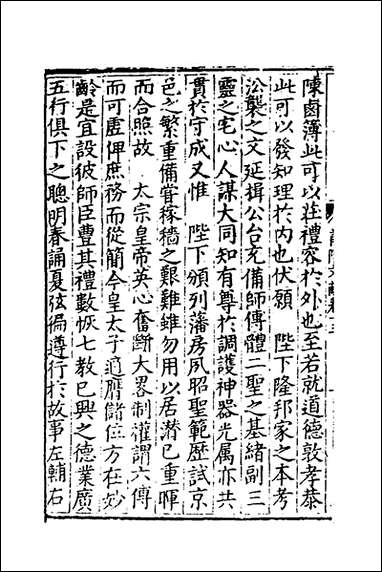 陳鹵簿此可以莊禮容於外也至若就道德敦孝恭
此可以發知理於内也伏願　陛下隆邦家之本考
㳂襲之文延揖公台充備師傅體二聖之基緒副三
靈之宅心人謀大同知有尊於調護神器光属亦共
貫於守成又惟　陛下頒列藩房夙昭聖範歴試京
邑之繁重備甞稼穡之艱難雖勿用以居潜已重暉
而合照故　太宗皇帝英心奮斷大畧制權謂六傅
而可虗俾庶務而從簡今皇太子適膺儲位方在妙
齡是宜設彼師臣豊其禮數恢七教已興之德業廣
五行俱下之聰明春誦夏弦徧遵行於故事左輔右